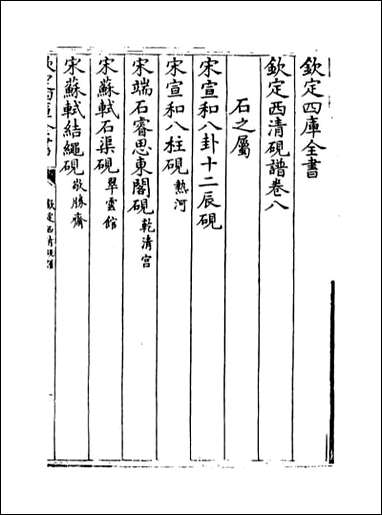 欽定四庫全書
欽定西清硯譜卷八
石之屬
宋宣和八卦十二辰硯
宋宣和八柱硯 熱河
宋端石睿思東閣硯 乾清宫
宋蘇軾石渠硯 翠雲館
宋蘇軾結繩硯 敬勝齋
欽定西清硯譜